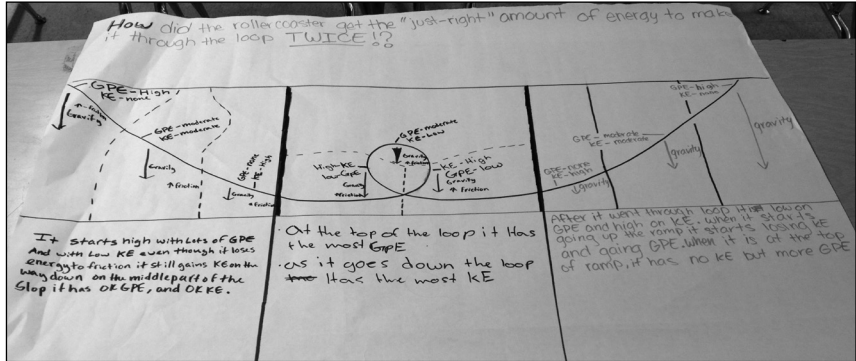 How did the rollercoaster get the "just-right" amount of energy to make
it through the loop TWICE!?
GPE-High
KE-none
Gravity
GPE-moderate
KE-moderate
Gravity
friction
GPE-none
KE-High
Gravity
friction
GPE-moderate
KE-Low
Gravity
High-KE
low-GPE
Gravity
friction
KE-High
GPE-low
Gravity
friction
GPE-none
KE-high
gravity
GPE-moderate
KE-moderate
gravity
GPE-high
gravity
It starts high with Lots of GPE
And with Low KE even though it loses
energy to friction it still gains KE on the
way down on the middle part of the
Slop it has OK GPE, and OK KE.
· At the top of the loop it Has
the most GPE
· as it goes down the loop
Has the most KE
After it went through loop it low on
GPE and high on KE. when it starts
going up the ramp it starts losing KE
and gaing GPE. when it is at the top
of ramp, it has no KE but more GPE